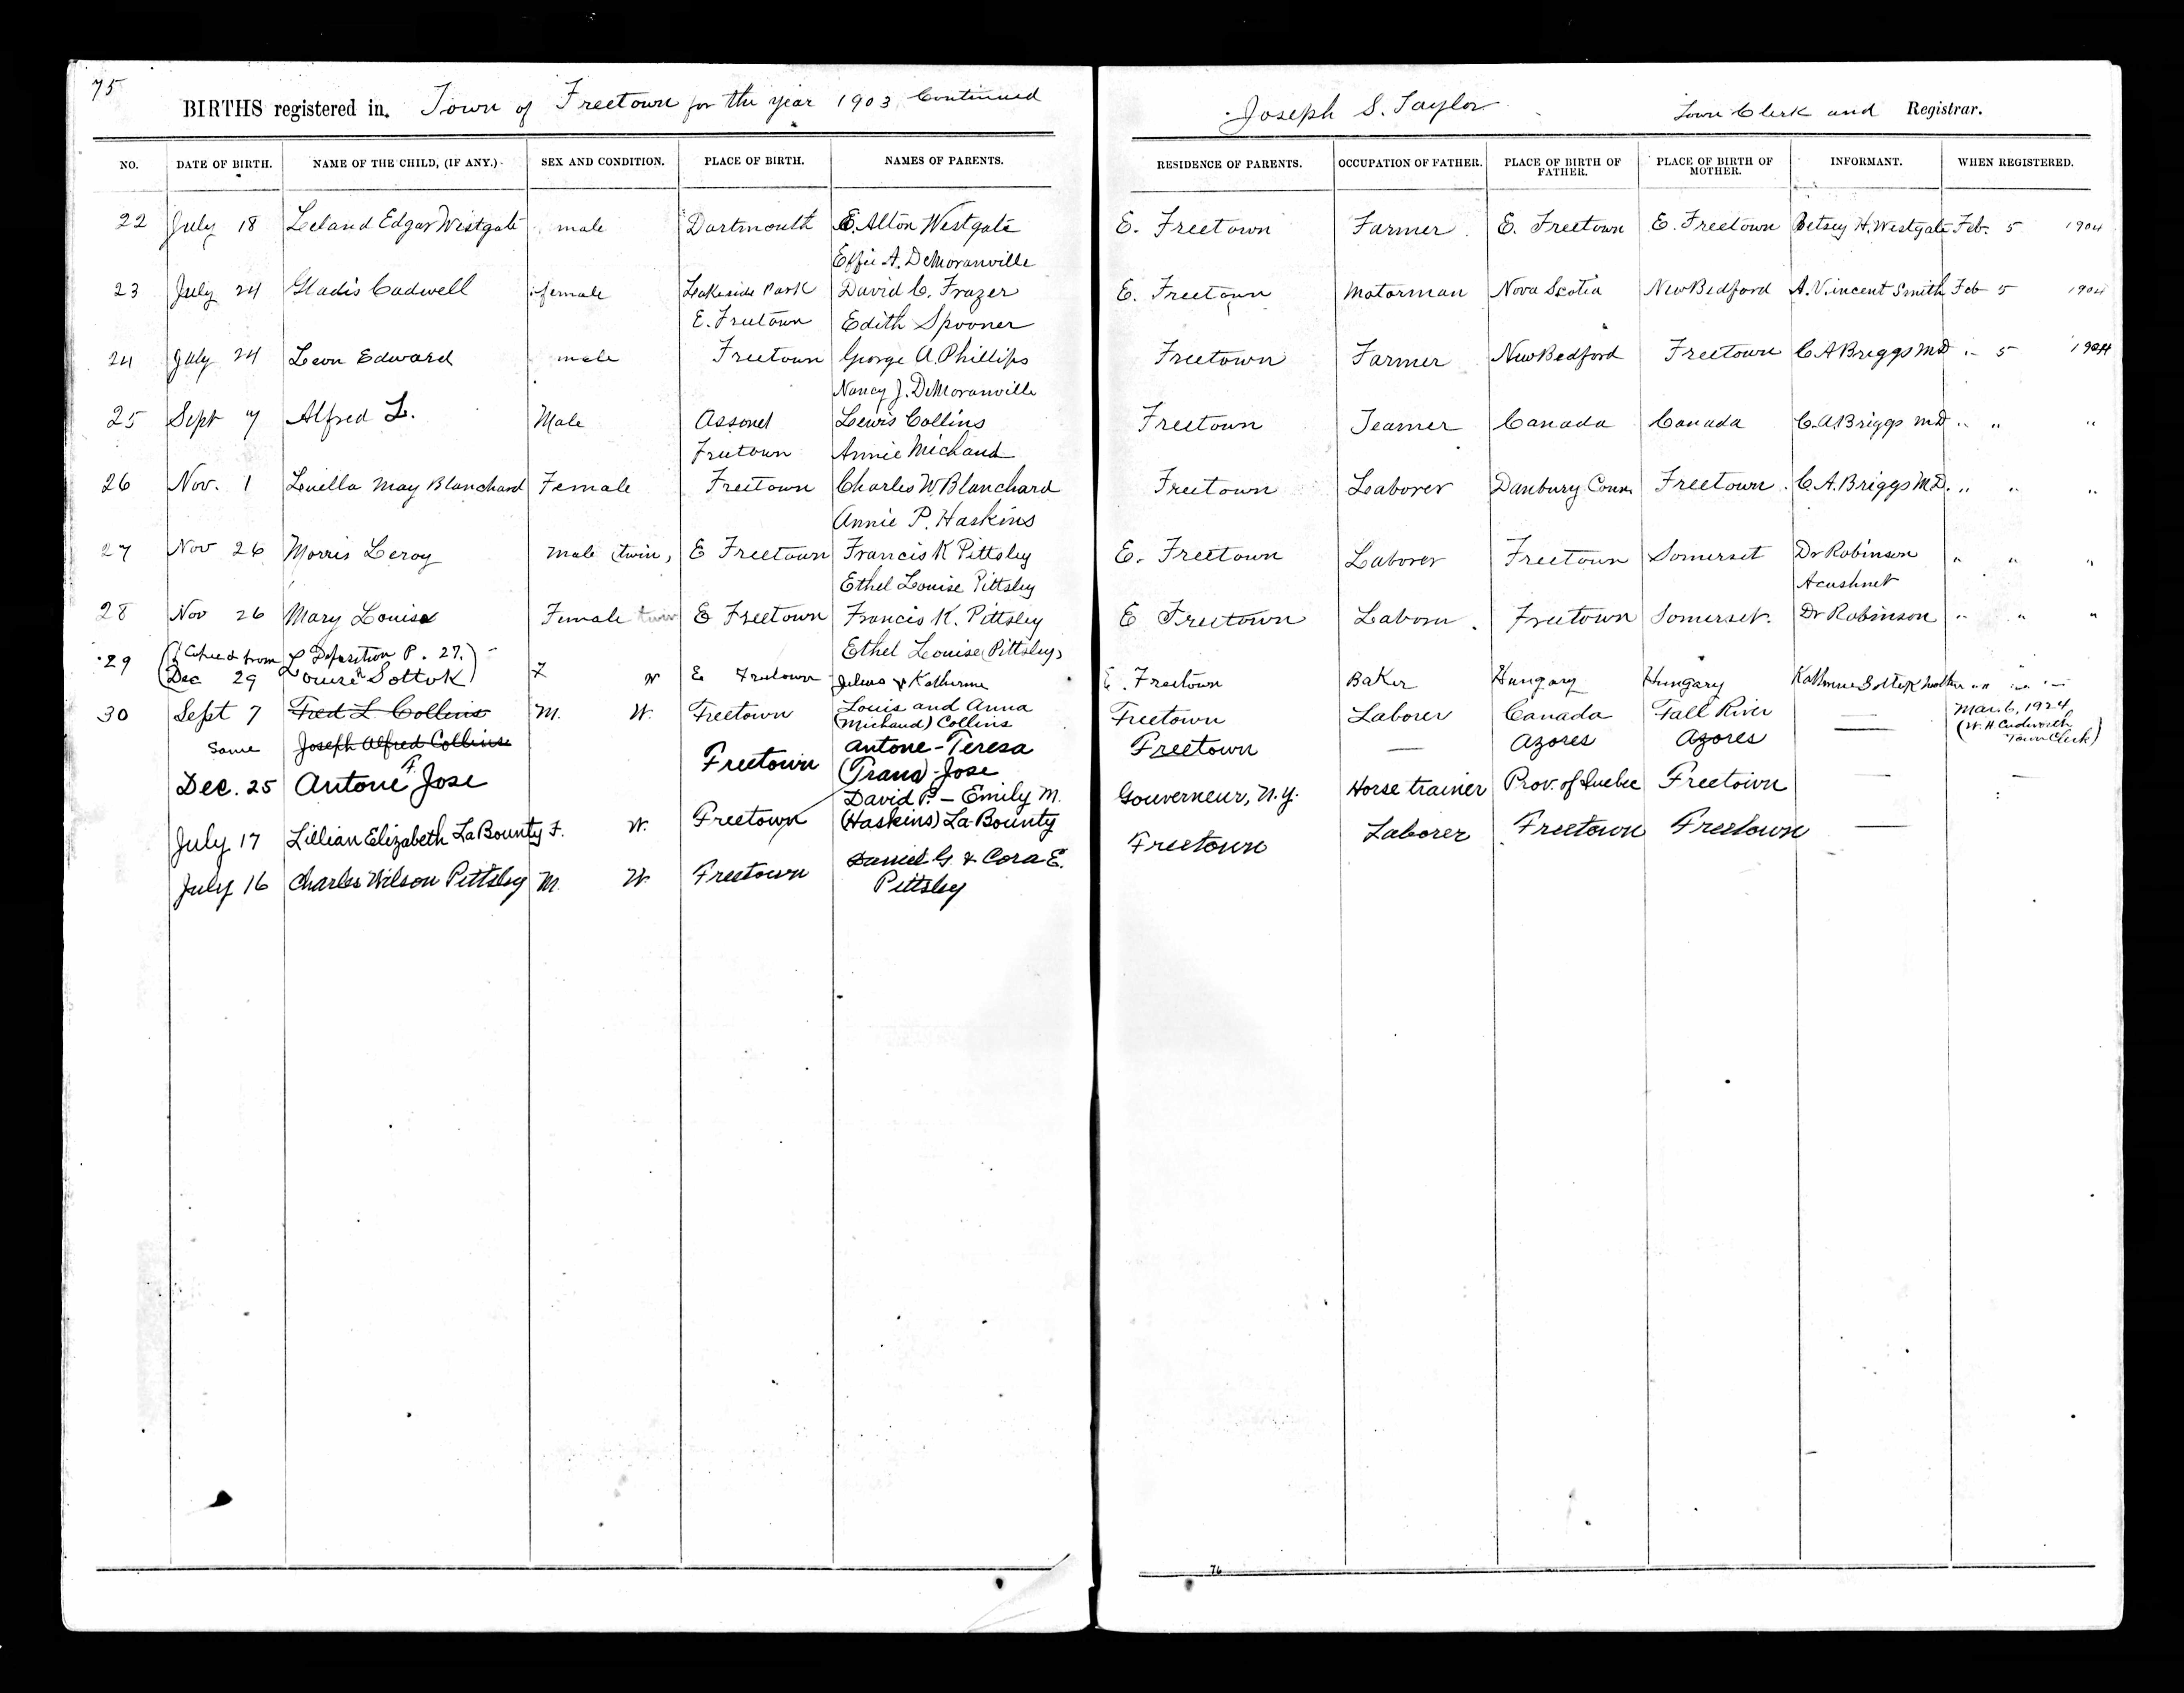 75
BIRTHS registered in. Town of Freetown for the year 1903 Continued
Joseph S. Taylor Town Clerk and Registrar.
NO. DATE OF BIRTH. NAME OF THE CHILD, (IF ANY.) SEX AND CONDITION. PLACE OF BIRTH. NAMES OF PARENTS. RESIDENCE OF PARENTS. OCCUPATION OF FATHER. PLACE OF BIRTH OF FATHER. PLACE OF BIRTH OF MOTHER. INFORMANT. WHEN REGISTERED.
22 July 18 Leland Edgar Westgate male Dartmouth E. Alton Westgate E. Freetown Farmer E. Freetown E. Freetown Betsey H. Westgate Feb. 5 1904
Effie A. DeMoranville
23 July 24 Gladis Cadwell female Lakeside Park David C. Frazer E. Freetown Motorman Nova Scotia New Bedford A. Vincent Smith Feb 5 1904
E. Freetown Edith Spooner
24 July 24 Leon Edward male Freetown George A. Phillips Freetown Farmer New Bedford Freetown C A Briggs MD " 5 1904
Nancy J. DeMoranville
25 Sept 7 Alfred L. Male Assonet Lewis Collins Freetown Teamer Canada Canada C. A. Briggs MD " " "
Freetown Annie Michaud
26 Nov. 1 Luella May Blanchard Female Freetown Charles W. Blanchard Freetown Laborer Danbury Conn Freetown C. A. Briggs M.D. " " "
Annie P. Haskins
27 Nov 26 Morris Leroy Male (twin) E Freetown Francis K Pittsley E. Freetown Laborer Freetown Somerset Dr Robinson " " "
Ethel Louise Pittsley Acushnet
28 Nov 26 Mary Louise Female twin E Freetown Francis K. Pittsley E Freetown Laborer Freetown Somerset. Dr Robinson " " "
Ethel Louise (Pittsley)
29 (Copied from Deposition P. 27.)
Dec 29 Louise Soltok F W E Freetown Julius & Katherine E. Freetown Baker Hungary Hungary Katherine Soltok mother " " "
30 Sept 7 Fred L. Collins M. W. Freetown Louis and Anna Freetown Laborer Canada Fall River — Mar. 6, 1924
(Michaud) Collins (W. H. Cudworth
Town Clerk)
Same Joseph Alfred Collins
Dec. 25 Antone F. Jose Freetown Antone - Teresa Freetown — Azores Azores —
- Jose
July 17 Lillian Elizabeth LaBounty F. W. Freetown David P. - Emily M. Gouverneur, N.Y. Horse trainer Prov. of Quebec Freetown — —
(Haskins) La Bounty
July 16 Charles Wilson Pittsley M. W. Freetown Daniel G & Cora E. Freetown Laborer Freetown Freetown —
Pittsley
76